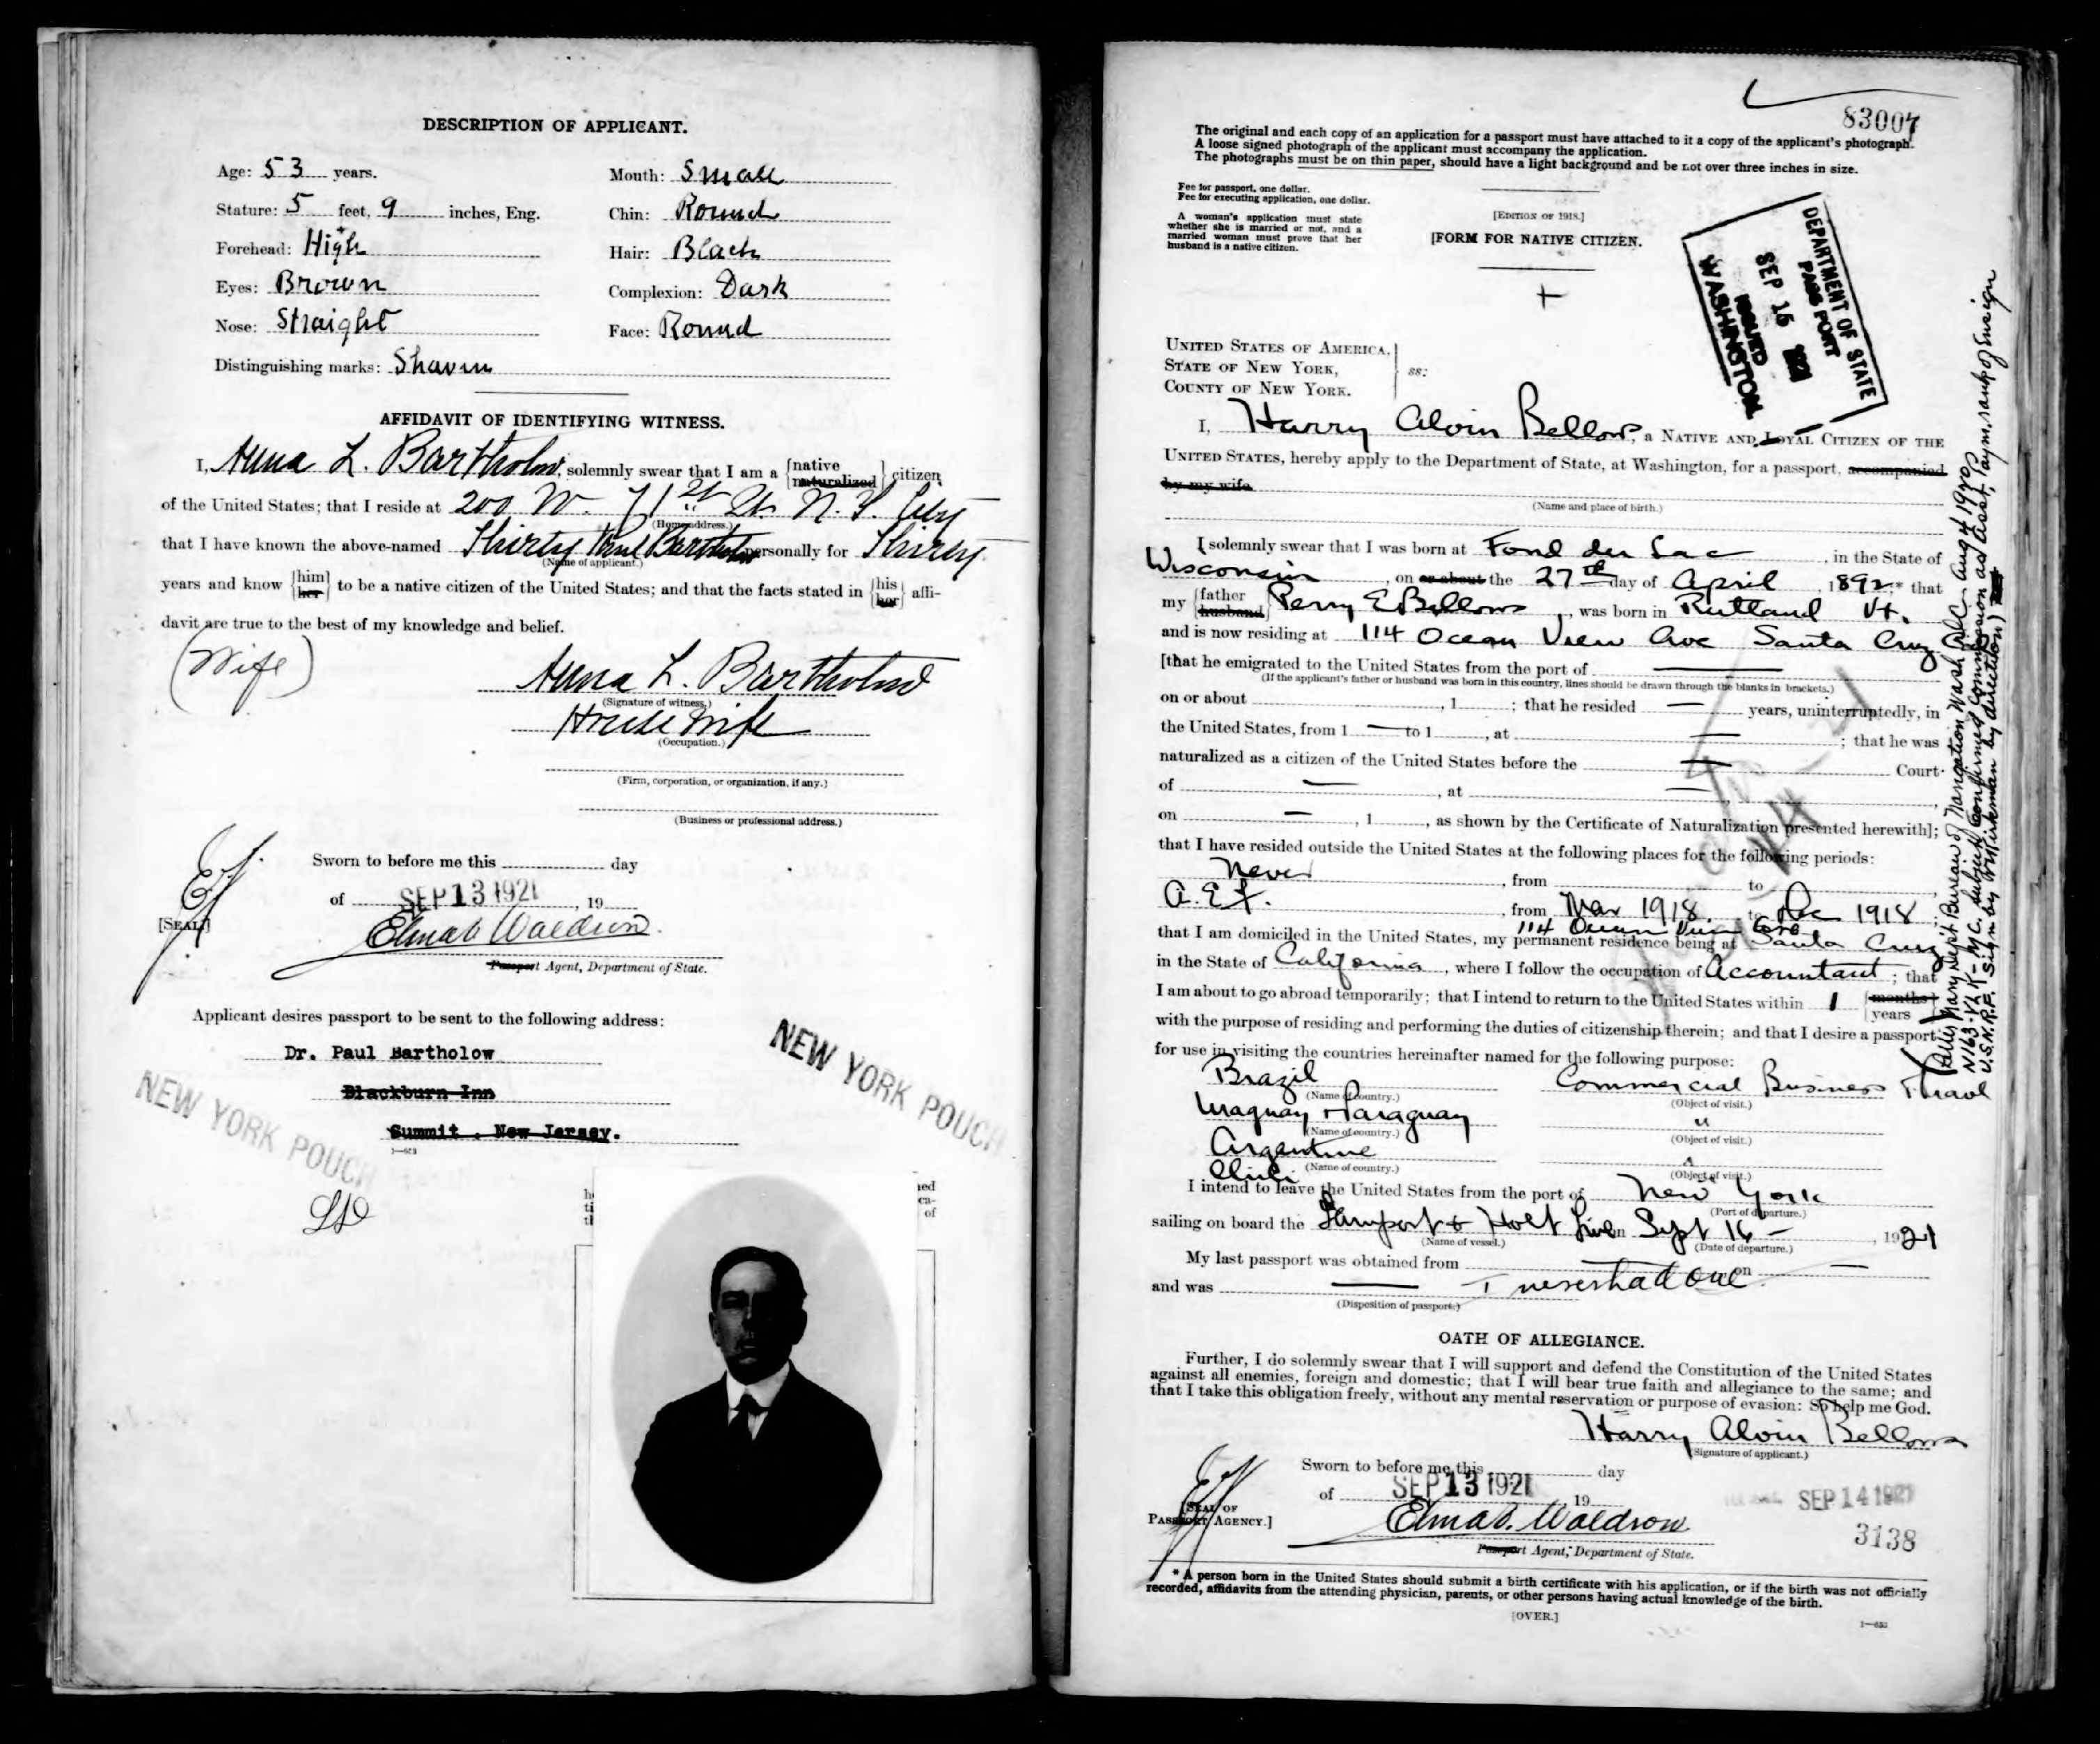 DESCRIPTION OF APPLICANT.
Age: 53 years.
Mouth: Small
Stature: 5 feet, 9 inches, Eng.
Chin: Round
Forehead: High
Hair: Black
Eyes: Brown
Complexion: Dark
Nose: Straight
Face: Round
Distinguishing marks: Shaven
AFFIDAVIT OF IDENTIFYING WITNESS.
I, Anna L. Bartholow, solemnly swear that I am a {native naturalized} citizen
of the United States; that I reside at 200 W. 71st St. N. Y. City
(Home address.)
that I have known the above-named Paul Bartholow personally for Thirty
(Name of applicant.)
years and know {him her} to be a native citizen of the United States; and that the facts stated in {his her} affi-
davit are true to the best of my knowledge and belief.
(Wife)
Anna L. Bartholow
(Signature of witness.)
House Wife
(Occupation.)
(Firm, corporation, or organization, if any.)
(Business or professional address.)
Sworn to before me this day
of SEP 13 1921, 19
[SEAL]
Waldron
Passport Agent, Department of State.
Applicant desires passport to be sent to the following address:
Dr. Paul Bartholow
Blackburn Inn
Summit. New Jersey.
1—653
NEW YORK POUCH
NEW YORK POUCH
83007
The original and each copy of an application for a passport must have attached to it a copy of the applicant's photograph.
A loose signed photograph of the applicant must accompany the application.
The photographs must be on thin paper, should have a light background and be not over three inches in size.
Fee for passport, one dollar.
Fee for executing application, one dollar.
A woman's application must state
whether she is married or not, and a
married woman must prove that her
husband is a native citizen.
[EDITION OF 1918.]
[FORM FOR NATIVE CITIZEN.
DEPARTMENT OF STATE
PASSPORT
SEP 15 1921
ISSUED
WASHINGTON
UNITED STATES OF AMERICA,
STATE OF NEW YORK,
COUNTY OF NEW YORK.
ss:
I, Harry Alvin Bellows, a NATIVE AND LOYAL CITIZEN OF THE
UNITED STATES, hereby apply to the Department of State, at Washington, for a passport, accompanied
by my wife
(Name and place of birth.)
I solemnly swear that I was born at Fond du Lac, in the State of
Wisconsin, on or about the 27th day of April, 1892,* that
my {father husband} Perry E Bellows, was born in Rutland Vt.
and is now residing at 114 Ocean View Ave Santa Cruz
[that he emigrated to the United States from the port of
(If the applicant's father or husband was born in this country, lines should be drawn through the blanks in brackets.)
on or about , 1 ; that he resided years, uninterruptedly, in
the United States, from 1 to 1 , at ; that he was
naturalized as a citizen of the United States before the Court
of , at ,
on , 1 , as shown by the Certificate of Naturalization presented herewith];
that I have resided outside the United States at the following places for the following periods:
Never, from to ,
A.E.F., from Mar 1918 to Dec 1918;
114 Ocean View Ave
that I am domiciled in the United States, my permanent residence being at Santa Cruz
in the State of California, where I follow the occupation of Accountant; that
I am about to go abroad temporarily; that I intend to return to the United States within 1 {months years
with the purpose of residing and performing the duties of citizenship therein; and that I desire a passport
for use in visiting the countries hereinafter named for the following purpose:
Brazil Commercial Business Travel
(Name of country.) (Object of visit.)
Uraguay + Paraguay "
(Name of country.) (Object of visit.)
Argentine "
(Name of country.) (Object of visit.)
Chili
I intend to leave the United States from the port of New York
(Port of departure.)
sailing on board the Lamport & Holt Line on Sept 16 — , 1921
(Name of vessel.) (Date of departure.)
My last passport was obtained from on
and was I never had one
(Disposition of passport.)
OATH OF ALLEGIANCE.
Further, I do solemnly swear that I will support and defend the Constitution of the United States
against all enemies, foreign and domestic; that I will bear true faith and allegiance to the same; and
that I take this obligation freely, without any mental reservation or purpose of evasion: So help me God.
Harry Alvin Bellows
(Signature of applicant.)
Sworn to before me this day
of SEP 13 1921 19
[SEAL OF
PASSPORT AGENCY.]
Waldron
Passport Agent, Department of State.
SEP 14 1921
3138
* A person born in the United States should submit a birth certificate with his application, or if the birth was not officially
recorded, affidavits from the attending physician, parents, or other persons having actual knowledge of the birth.
[OVER.]
1—653